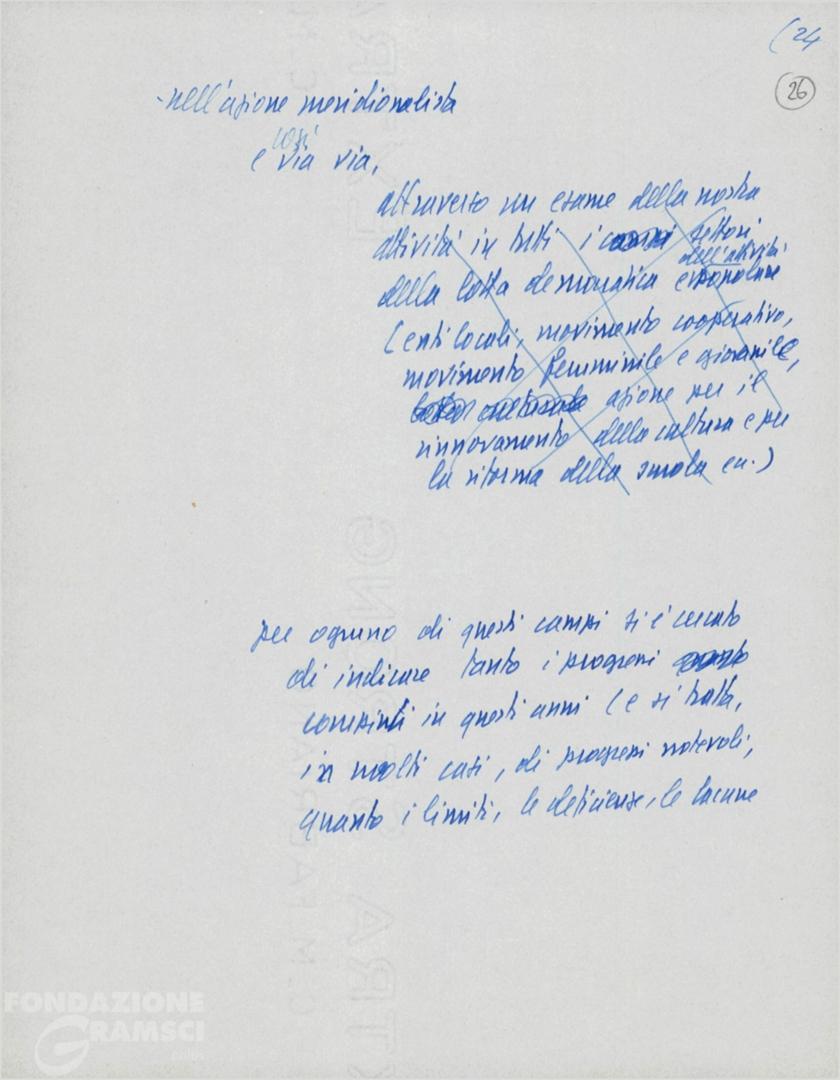 (24
26
- nell'azione meridionalista
così
e via via,
attraverso un esame della nostra
attività in tutti i campi settori
dell'attività
della lotta democratica e popolare
(enti locali, movimento cooperativo,
movimento femminile e giovanile,
lotta culturale azione per il
rinnovamento della cultura e per
la riforma della scuola ecc.)
per ognuno di questi campi si è cercato
di indicare tanto i progressi
compiuti in questi anni (e si tratta,
in molti casi, di progressi notevoli,
quanto i limiti, le deficienze, le lacune
FONDAZIONE
GRAMSCI